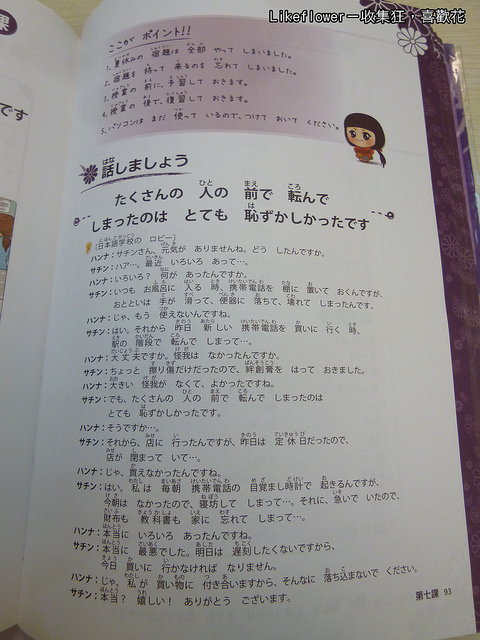 Likeflower－收集狂，喜歡花
課
です
ここが ポイント!!
1. 夏休みの 宿題は 全部 やって しまいました。
2. 宿題を 持って 来るのを 忘れて しまいました。
3. 授業の 前に、予習して おきます。
4. 授業の 後で、復習して おきます。
5. パソコンは まだ 使って いるので、つけて おいて ください。
話しましょう
たくさんの 人の 前で 転んで
しまったのは とても 恥ずかしかったです
(日本語学校の ロビー)
ハンナ：サチンさん、元気が ありませんね。どう したんですか。
サチン：ハア…。最近 いろいろ あって…。
ハンナ：いろいろ？ 何が あったんですか。
サチン：いつも お風呂に 入る 時、携帯電話を 棚に 置いて おくんですが、
おとといは 手が 滑って、便器に 落ちて、壊れて しまったんです。
ハンナ：じゃ、もう 使えないんですね。
サチン：はい。それから 昨日 新しい 携帯電話を 買いに 行く 時、
駅の 階段で 転んで しまって…。
ハンナ：大丈夫ですか。怪我は なかったんですか。
サチン：ちょっと 擦り傷だけだったので、絆創膏を はって おきました。
ハンナ：大きい 怪我が なくて、よかったですね。
サチン：でも、たくさんの 人の 前で 転んで しまったのは
とても 恥ずかしかったです。
ハンナ：そうですか…。
サチン：それから、店に 行ったんですが、昨日は 定休日だったので、
店が 閉まって いて…。
ハンナ：じゃ、買えなかったんですね。
サチン：はい。私は 毎朝 携帯電話の 目覚まし時計で 起きるんですが、
今朝は なかったので、寝坊して しまって…。それに、急いで いたので、
財布も 教科書も 家に 忘れて しまって…。
ハンナ：本当に いろいろ あったんですね。
サチン：本当に 最悪でした。明日は 遅刻したくないですから、
今日 買いに 行かなければ なりません。
ハンナ：じゃ、私が 買い物に 付き合いますから、そんなに 落ち込まないで ください。
サチン：本当？ 嬉しい！ ありがとう ございます。
第七課 93